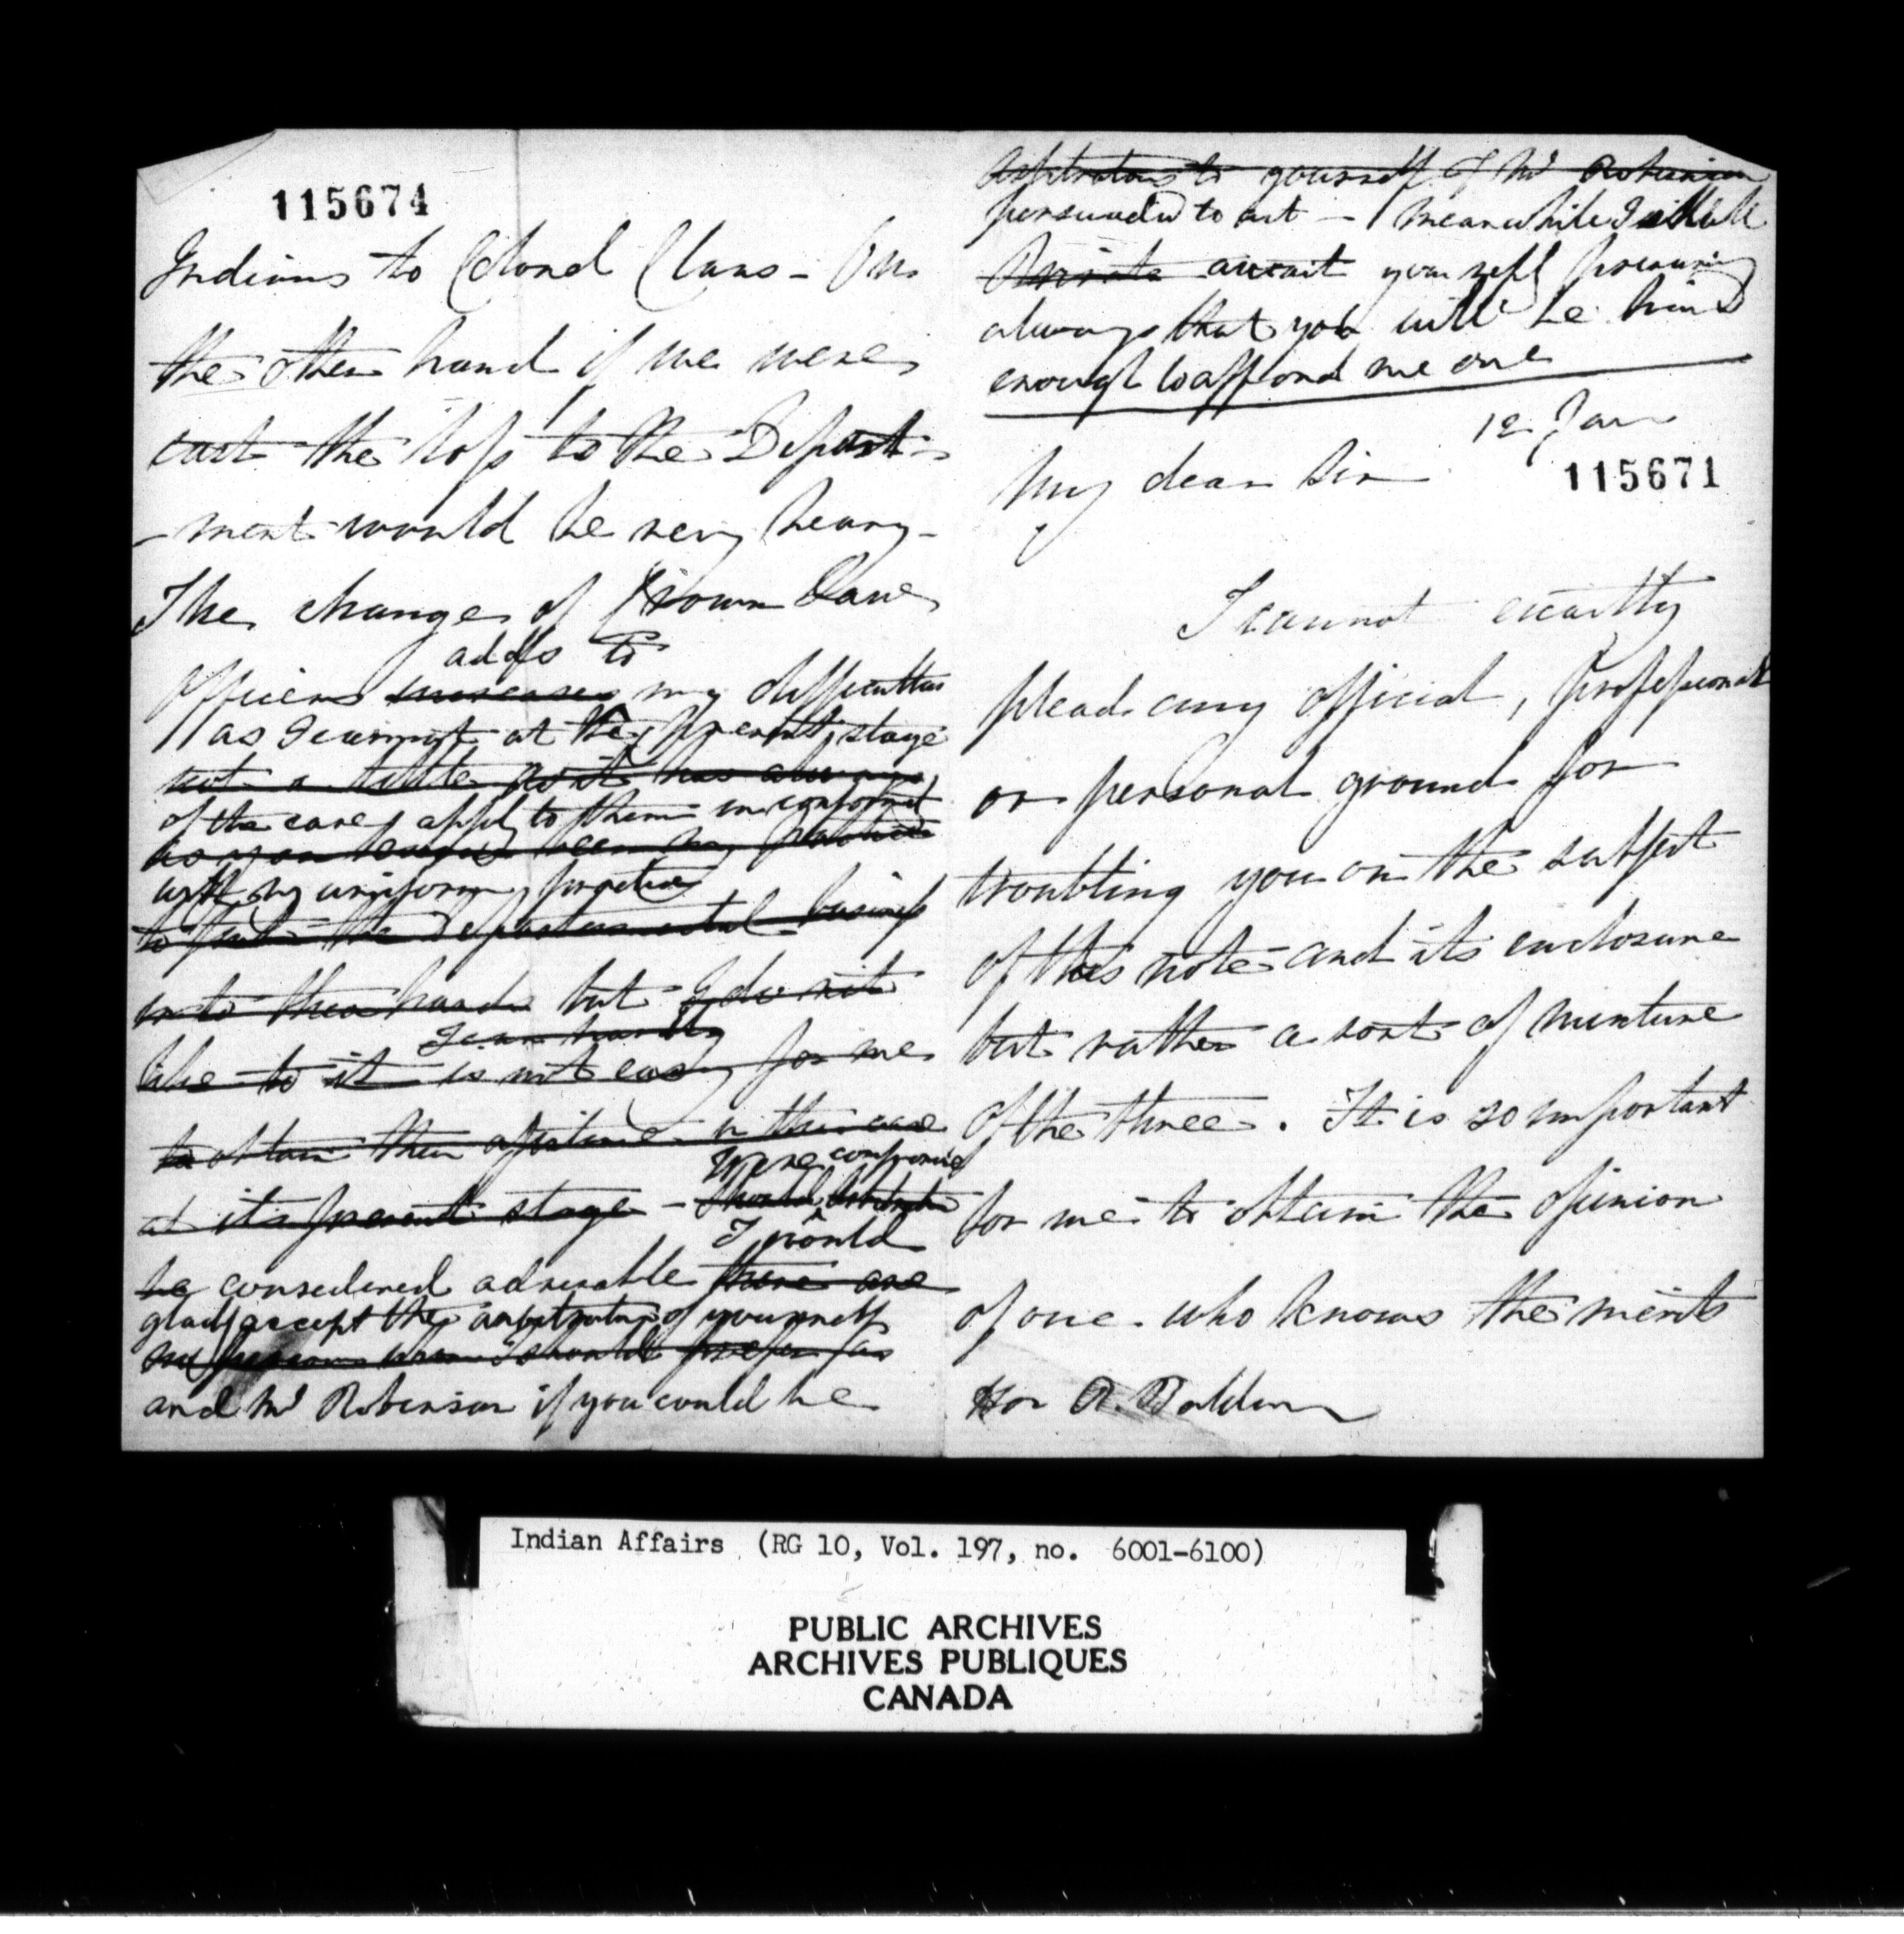 115674
Indians to Colonel Claus - On
the other hand if we were
cast the loss to the Depart-
-ment would be very heavy -
The change of Crown Law
adds to
officers increases my difficulties
as I cannot at the present stage
not a little as it has always
of the case apply to them in conformity
as you
with my uniform practice
to put the Departmental business
into their hands but I do not
I can hardly
like to it is not easy for me
to obtain their opinion in this case
Were compromise
at its present stage - should
I would
be considered advisable there are
gladly accept the arbitration of yourself
no persons whom I should prefer as
and Mr Robinson if you could be
Arbitrators to yourself & Mr Robinson
persuaded to act - meanwhile I will
await your reply presuming
always that you will be kind
enough to afford me one
12 Jan
My dear Sir
115671
I cannot exactly
plead any official, professional
or personal ground for
troubling you on the subject
of this note and its enclosure
but rather a sort of mixture
of the three. It is so important
for me to obtain the opinion
of one who knows the merits
Hon R. Baldwin
Indian Affairs (RG 10, Vol. 197, no. 6001-6100)
PUBLIC ARCHIVES
ARCHIVES PUBLIQUES
CANADA